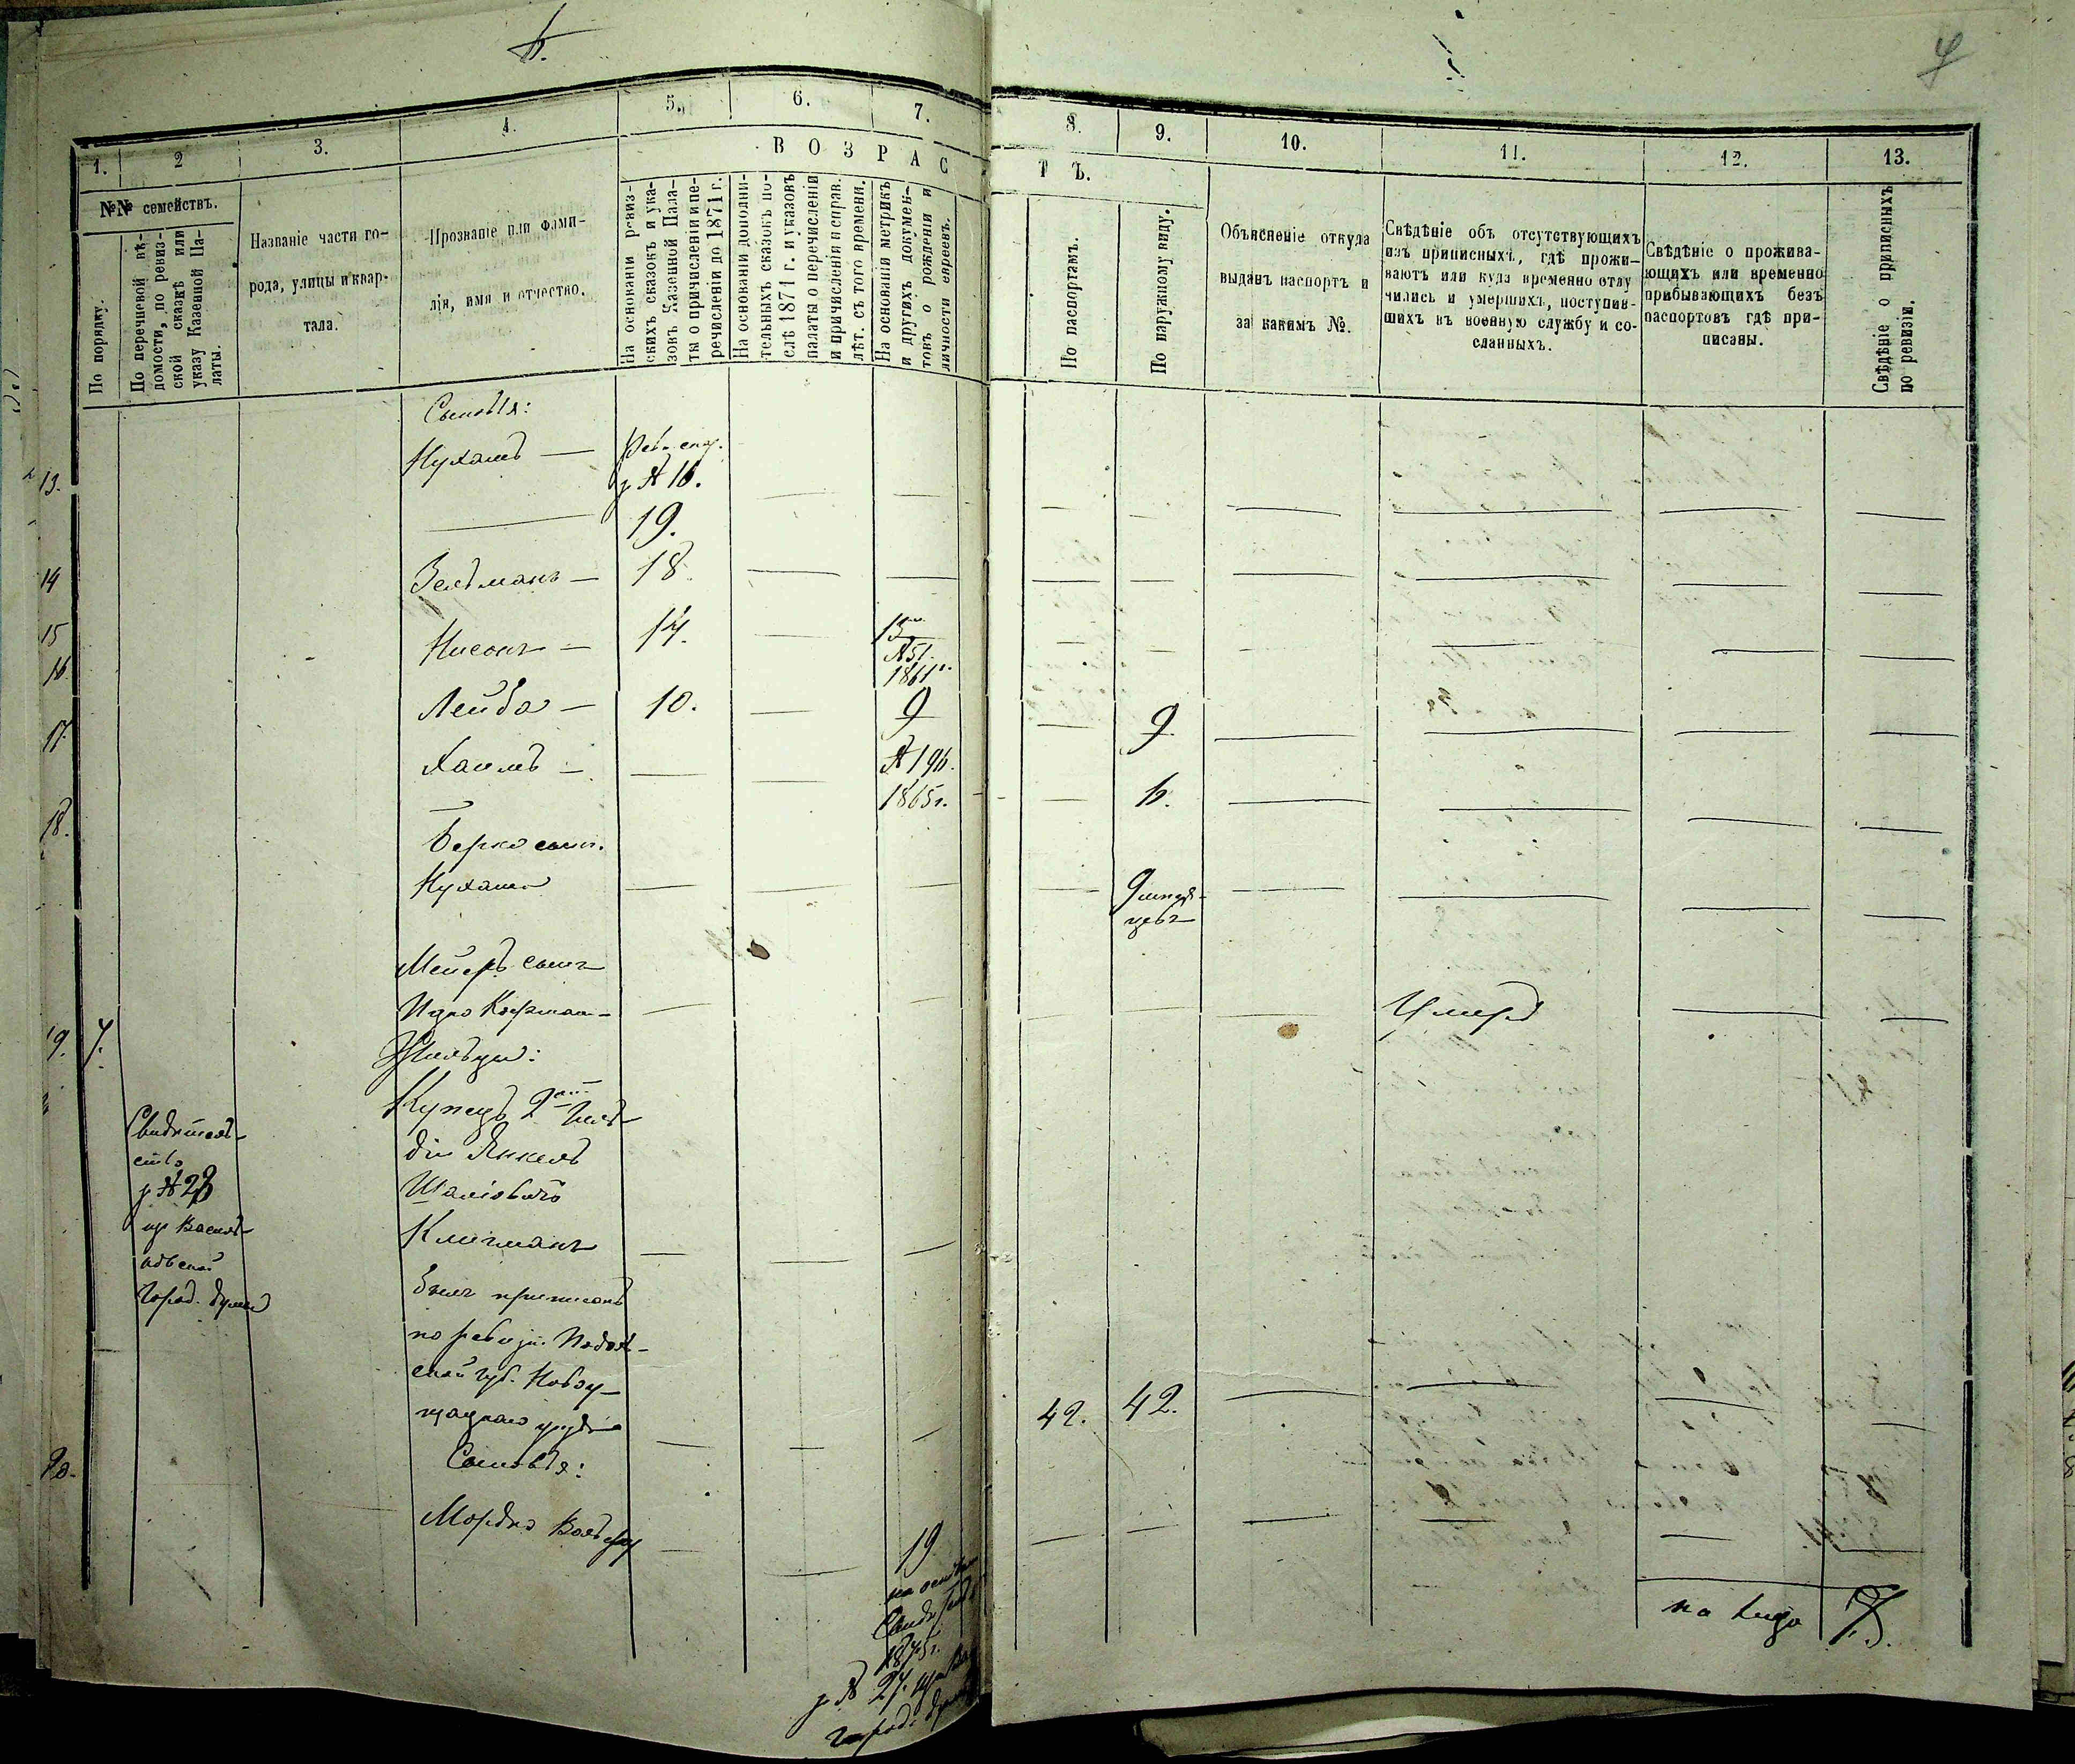 4
1.
2
3.
4.
5.
6.
7.
8.
9.
10.
11.
12.
13.
№№ семействъ.
В О З Р А С
Т Ъ.
По порядку.
По перечневой вѣ-
домости, по ревиз-
ской сказкѣ или
указу Казенной Па-
латы.
Названіе части го-
рода, улицы и квар-
тала.
Прозваніе или фами-
лія, имя и отчество.
На основаніи ревиз-
скихъ сказокъ и ука-
зовъ Казенной Пала-
ты о причисленіи и пе-
речисленіи до 1871 г.
На основаніи дополни-
тельныхъ сказокъ по-
слѣ 1871 г. и указовъ
палаты о перечисленіи
и причисленіи и справ.
лѣт. съ того времени.
На основаніи метрикъ
и другихъ докумен-
товъ о рожденіи и
личности евреевъ.
По паспортамъ.
По наружному виду.
Объясненіе откуда
выданъ паспортъ и
за какимъ №.
Свѣдѣніе объ отсутствующихъ
изъ приписныхъ, гдѣ прожи-
ваютъ или куда временно отлу
чились и умершихъ, поступив-
шихъ въ военную службу и со-
сланныхъ.
Свѣдѣніе о прожива-
ющихъ или временно
прибывающихъ безъ
паспортовъ гдѣ при-
писаны.
Свѣдѣніе о приписныхъ
по ревизіи.
Сыновья:
13. Нухимъ —
№ 16.
19.
14 Зельманъ — 18.
15 Нисонъ — 17. 13
№ 51.
1861 г.
16 Лейба — 10. 9 9
17. Хаимъ — № 196.
1865 г. 6.
18. Берко сынъ
Нухима 9 меся-
цевъ
Мейеръ сынъ
Умеръ
19. 7.
Купецъ 2ой Гиль-
діи Янкель
Свидѣтель-
ство
№ 28
Город. думы
былъ приписанъ
по ревизіи Подоль-
ской губ. 42. 42.
20. Сыновья:
Мордко 19
1875 г.
№ 27.
город.
на лицо